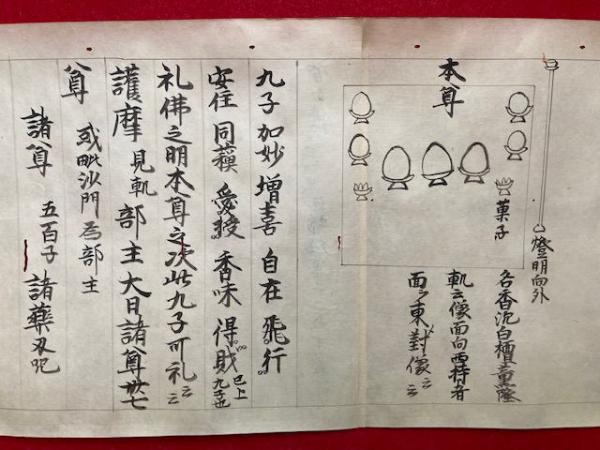 燈明向外
本尊
菓子
各香沉白檀薫陸
軌云像面向西持者
面ヲ東對像云云
九子 加妙 増喜 自在 飛行
安住 同 愛 香味 得財 已上九子也
礼佛之明本尊之次此九子可礼云云
護摩 見軌 部主 大日 諸尊 卅七
尊 或毗沙門為部主
諸尊 五百子 諸藥叉呪